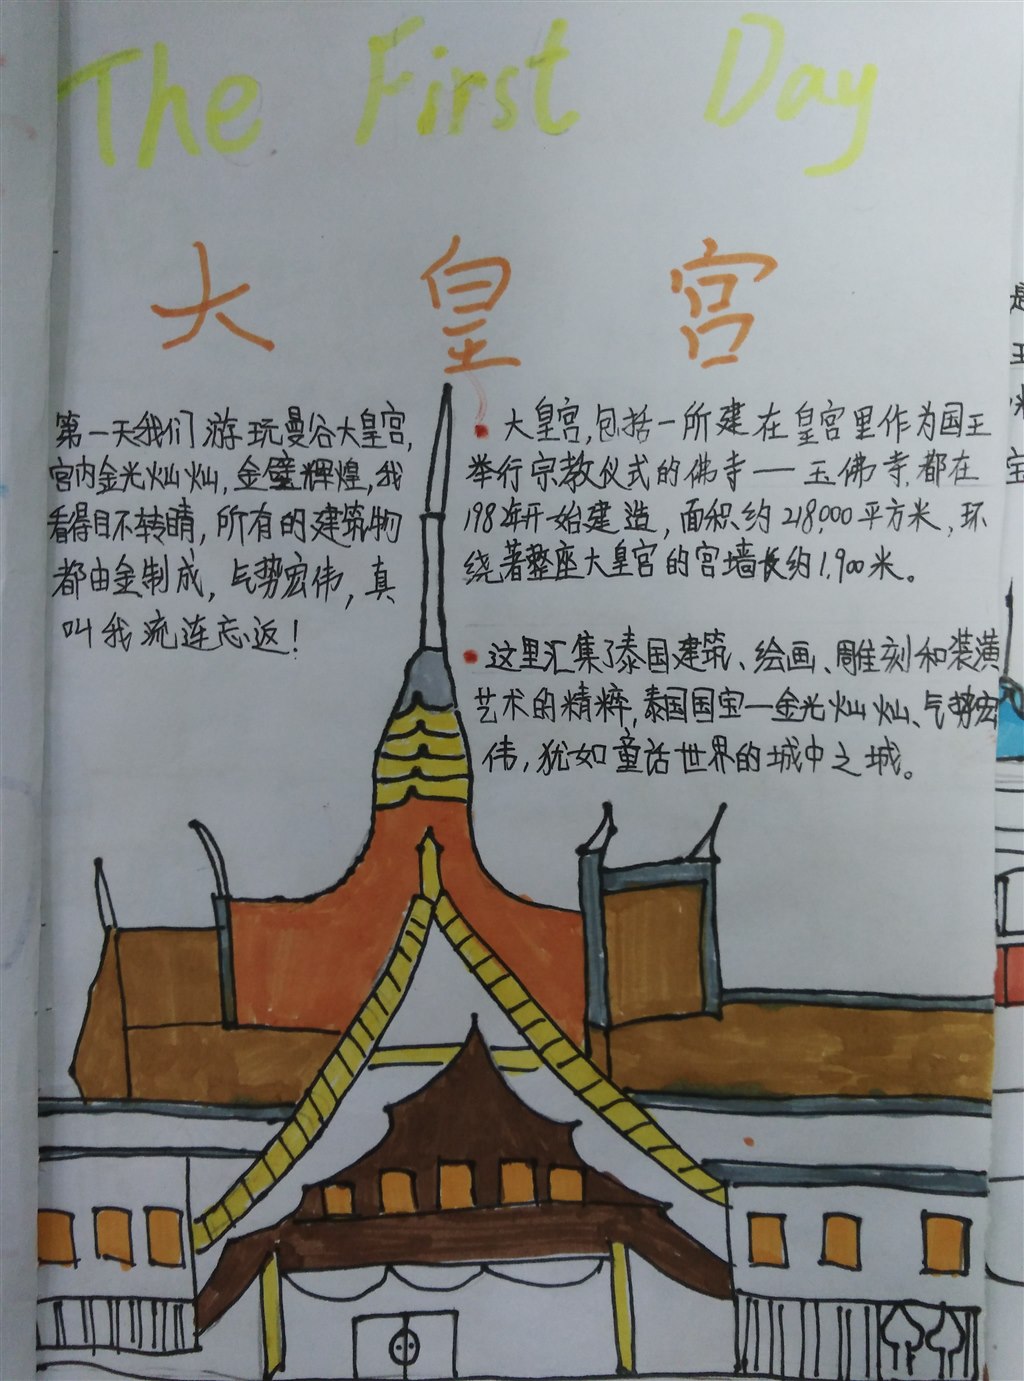 The First Day
大皇宫
第一天我们游玩曼谷大皇宫,
宫内金光灿灿,金璧辉煌,我
看得目不转睛,所有的建筑物
都由金制成,气势宏伟,真
叫我流连忘返!
大皇宫,包括一所建在皇宫里作为国王
举行宗教仪式的佛寺——玉佛寺.都在
1982年开始建造,面积约218,000平方米,环
绕著整座大皇宫的宫墙长约1,900米。
这里汇集了泰国建筑、绘画、雕刻和装潢
艺术的精粹,泰国国宝—金光灿灿、气势宏
伟,犹如童话世界的城中之城。